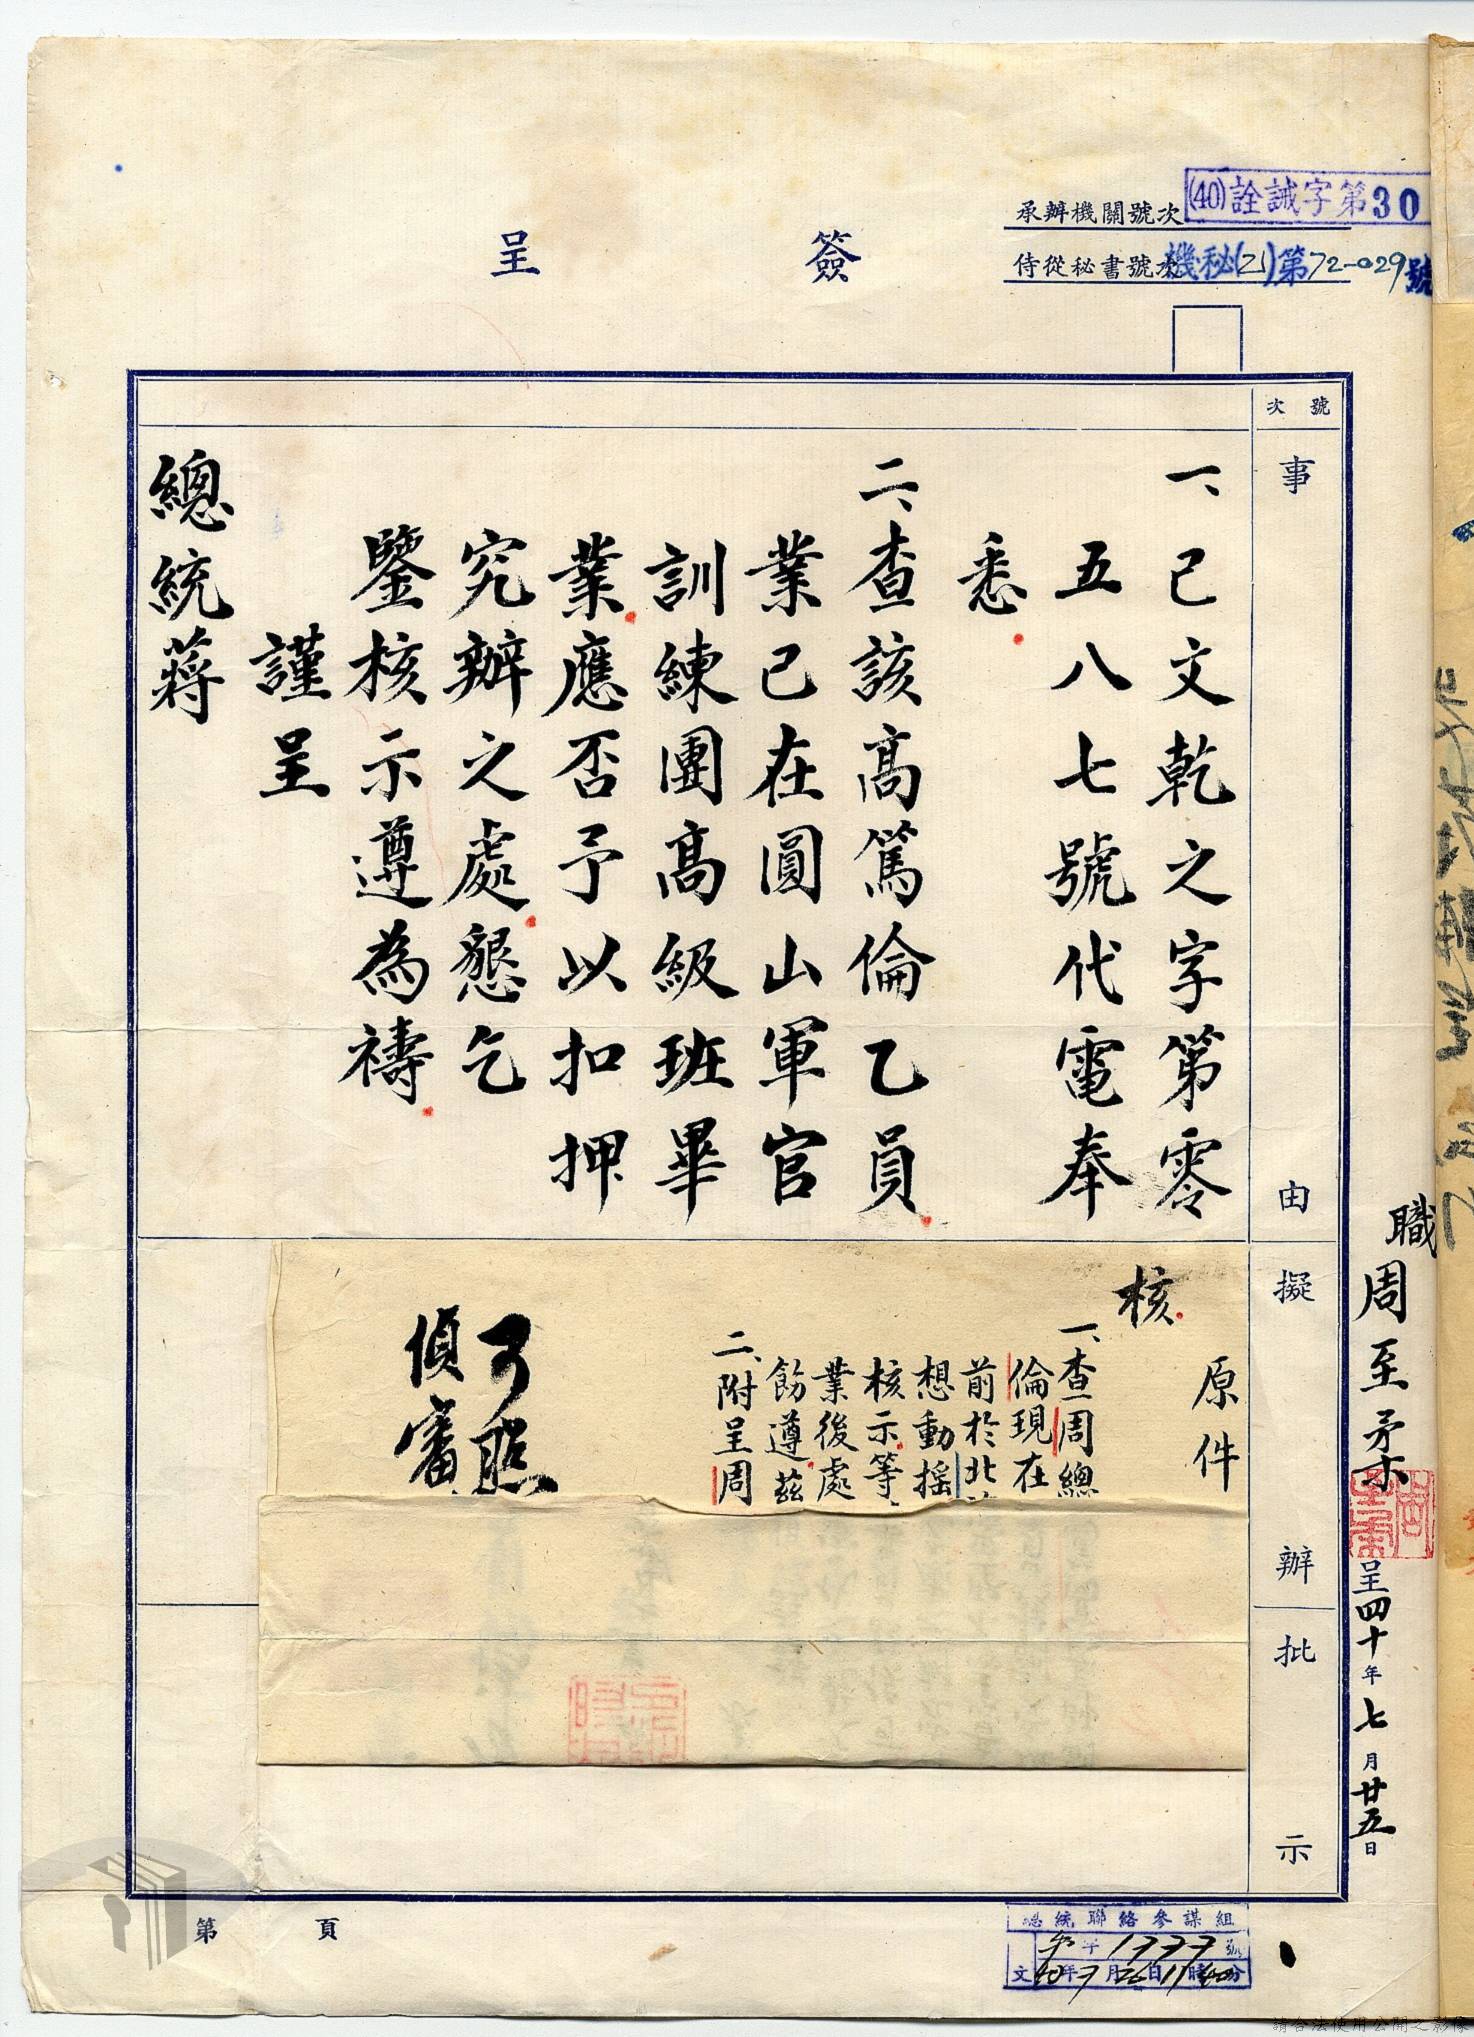 簽呈
承辦機關號次
(40)詮誠字第30
侍從秘書號次
機秘(21)第72-029號
號次
事由
擬辦
批示
一、巳文乾之字第零
五八七號代電奉
悉
二、查該高篤倫乙員
業已在圓山軍官
訓練團高級班畢
業應否予以扣押
究辦之處懇乞
鑒核示遵為禱
謹呈
總統蔣
職周至柔
呈四十年七月廿五日
原件
核
一、查周總
倫現在
前於北
想動搖
核示等
業後處
飭遵茲
二、附呈周
可照
偵審
第 頁
總統聯絡參謀組
文 40年7月26日11時40分
請合法使用公開之影像